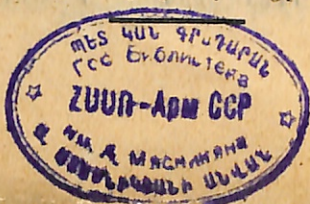 ՊԵՏ ԿԱՆ ԳՐԱԴԱՐԱՆ
Гос Библиотека
ՀՍՍՌ-Арм ССР
им. А. Мясникяна
Ա. ՄՅԱՍՆԻԿՅԱՆԻ ԱՆՎԱՆ